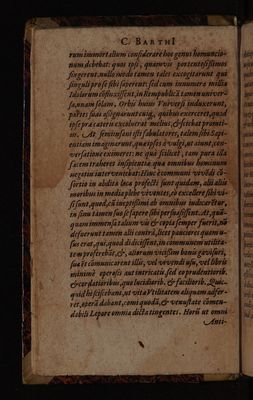 C. BARTHI
rum immortalium considerare hoc genus homuncio-
num debebat: quos ipsi, quamvis portentosissimos
fingerent, nullo modo tamen tales excogitarunt qui
singuli prose sibi saperent: sed cum innumera millia
Idolorum confinxissent, in Rempublicā tamen univer-
sa, unam, Orbis huius Universi induxerunt,
partes suas assignarunt cuiq, quibus exerceret, quod
ipse præ cæteris excluserat melius, & secerat
At sentinsani isti fabulatores, talem sibi Sapi-
entiam imaginerunt, quæ ipsos à vulgi, ut aiunt, con-
versatione eximeret: ne quid scilicet, tam pura illa
facem traheret insipientiæ quæ omnibus hominum
negotiis interveniebat: Hinc è communi vivēdi cō-
sortio in abdita loca profecti sunt quidam, alii aliis
moribus in media plebe viventes, eò excellere sibi vi-
si sunt, quod, cū ineptissimi ab omnibus indicarētur,
in sinu tamen suo se sapere sibi persuasissent. at, quā-
quam immensa talium vis & copia semper fuerit, nō
defuerunt tamen alii contrà, licet pauciores quam u-
sus erat, qui, quod didicissent, in communem utilita-
tem proferebat, &, aliorum vicissim bonis gavisuri,
sua et cōmunicarent illis, vel vivendi usu, vel libris
minimè operosis aut intricatis, sed eo prudentioribus.
& cordatioribus, quo lucidiorib. & facilioib. Quic-
quid hi scisebant, ut vitæ utilitatem aliquam adfer-
ret, operā dabant, comi quodā, & venustate cōmen-
dabili Lepore omnia dicta tingentes. Horū ut omni
Anti-